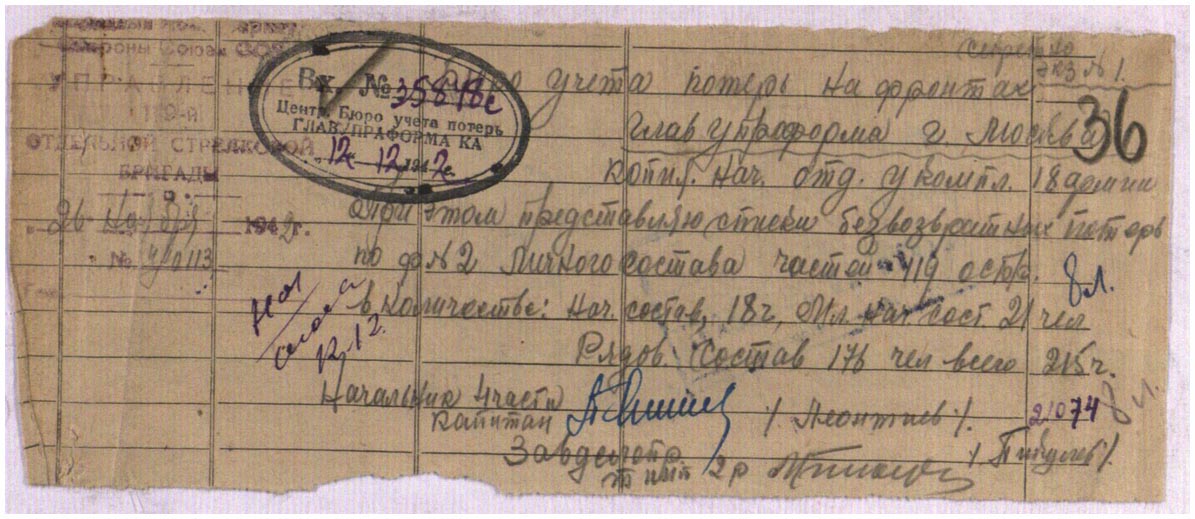 Народный Ком.
Обороны Союза ССР
УПРАВЛЕНИЕ
119-й
ОТДЕЛЬНОЙ СТРЕЛКОВОЙ
БРИГАДЫ
„26 Ноября 1942г.
№ 40113
Вх №35848с
Центр. Бюро учета потерь
ГЛАВУПРАФОРМА КА
„12 12 1942г.
секретно
экз №1.
бюро учета потерь на фронтах
Главупраформа г. Москва
36
копия. Нач. отд. укомпл. 18 армии
При этом представляю списки безвозвратных потерь
по ф №2 личного состава частей 119 осбр.
8л.
в количестве: Нач. состав, 18ч, Мл нач. сост. 21 чел
Рядов. Состав 176 чел всего 215ч.
12.12.
Начальник 4 части
капитан / Леонтиев /.
21074
8 л.
Завделопр.
2р / Пикулев /.